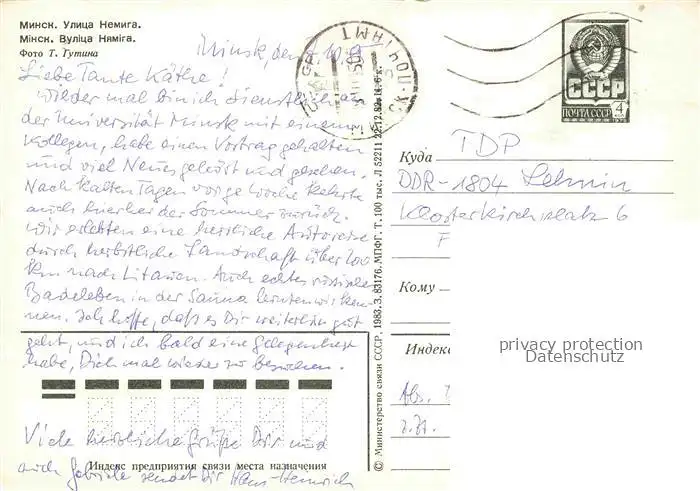 Минск. Улица Немига.
Мінск. Вуліца Няміга.
Фото Т. Тутина
Minsk, den
Liebe Tante Käthe!
wieder mal bin ich dienstlich an
der Universität Minsk mit einem
Kollegen, habe einen Vortrag gehalten
und viel Neues gehört und gesehen.
Nach kalten Tagen vorige Woche kehrte
auch hierher der Sommer zurück.
Wir erlebten eine herrliche Autoreise
durch herbstliche Landschaft über 200
km nach Litauen. Auch echtes russisches
Badeleben in der Sauna lernten wir ken-
nen. Ich hoffe, daß es Dir weiterhin gut
geht, und ich bald eine Gelegenheit
habe, Dich mal wieder zu besuchen.
Viele herzliche Grüße Dir und
auch Gabriele sendet Dir Hans-Heinrich
Индекс предприятия связи места назначения
© Министерство связи СССР, 1983. З. 83176. МПФГ. Т. 100 тыс. Л 52211 22.12.82 г. ц. 6 к.
МИНСК-ПОЧТАМТ
СССР
ПОЧТА СССР 4 К
Куда TDP
DDR-1804 Lehnin
Klosterkirchplatz 6
F
Кому
Индекс
privacy protection
Datenschutz
Abs.
z. Zt.